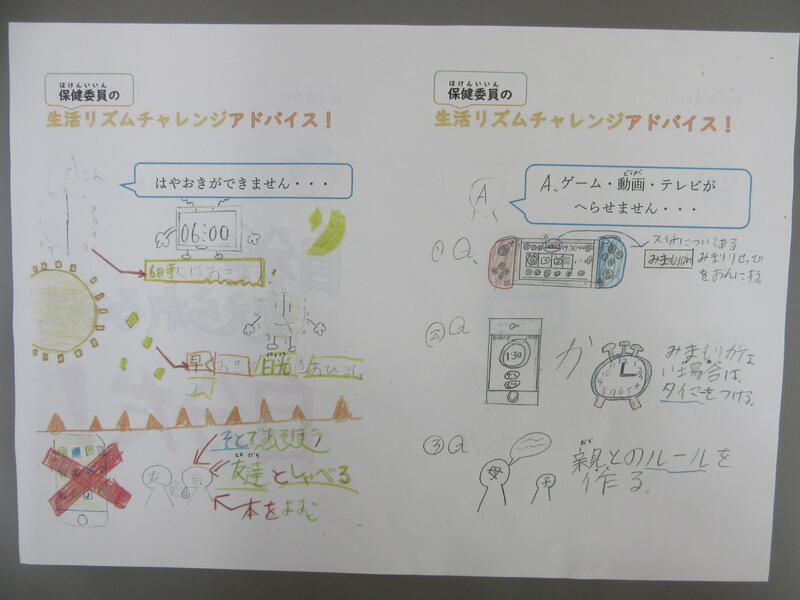 ほけんいいん
保健委員の
生活リズムチャレンジアドバイス！
Aさん
はやおきができません・・・
06:00
6時にはおこす
早く
日光をあびましょ
そとであそぼう
友達としゃべる
本をよむ
ほけんいいん
保健委員の
生活リズムチャレンジアドバイス！
A
A、ゲーム・動画・テレビが
どうが
へらせません・・・
① Q、
みまもりon
みまもりせってい
をおんにする
② Q
1:30
か
みまもりがな
い場合は、
タイマーをつける。
③ Q
母
親とのルールを
作る。